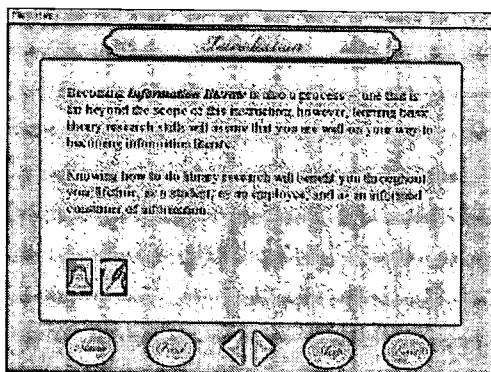 Introduction
Becoming information literate is also a process -- one that is
far beyond the scope of this instruction, however, learning basic
library research skills will assure that you are well on your way to
becoming information literate.
Knowing how to do library research will benefit you throughout
your lifetime, as a student, as an employee, and as an informed
consumer of information.
Map